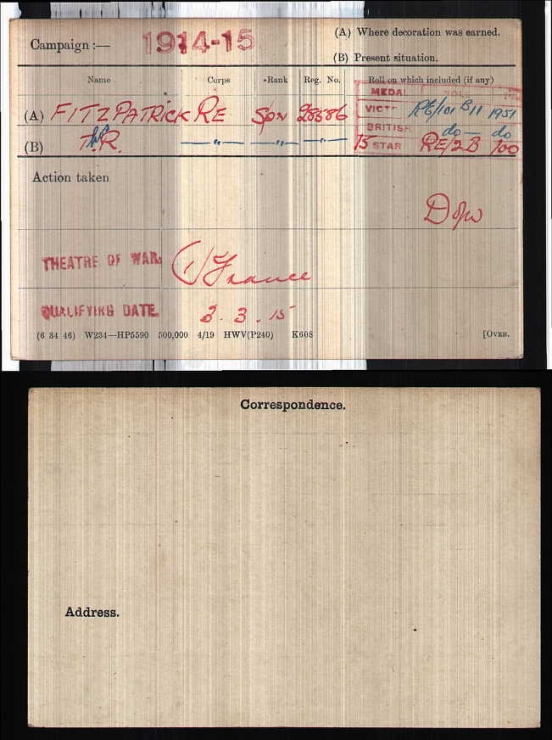 Campaign :— 1914-15
(A) Where decoration was earned.
(B) Present situation.
Name Corps Rank Reg. No. Roll on which included (if any)
MEDAL
(A) FITZPATRICK RE Spr 28686 VICT RE/101 B11 1951
BRITISH do — do
(B) T. R. — " — — " — — " — 15 STAR RE/2B 100
Action taken
THEATRE OF WAR. (1) France
QUALIFYING DATE. 2.3.15
(6 34 46) W234—HP5590 500,000 4/19 HWV(P240) K608 [OVER.
Correspondence.
Address.